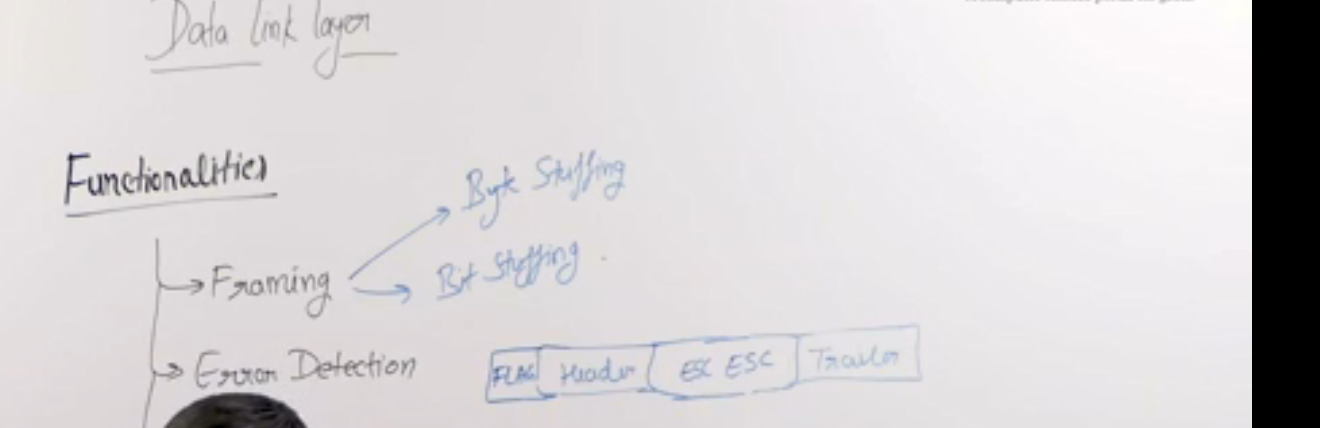 Data link layer
Functionalities
Byte Stuffing
Framing
Bit Stuffing
Error Detection
FLAG Header ESC ESC Trailer